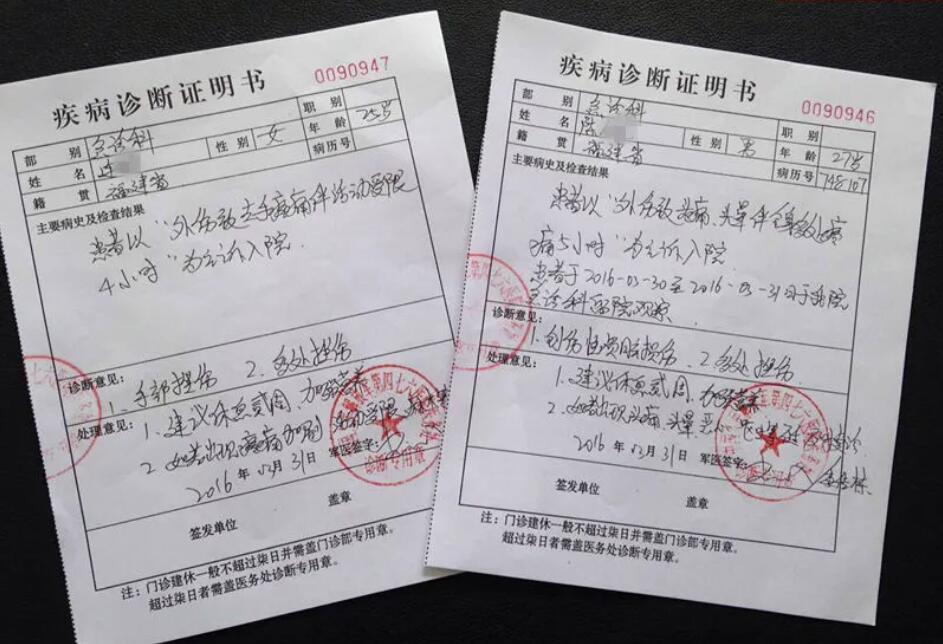 疾病诊断证明书
0090947
部别 急诊科 职别
姓名 性别 女 年龄 25岁
籍贯 福建省 病历号
主要病史及检查结果
患者以"外伤致左手疼痛伴活动受限
4小时"为主诉入院.
诊断意见:
1. 手部挫伤 2. 多处挫伤
处理意见: 1. 建议休息贰周、加强营养
2. 如若出现疼痛加剧 活动受限
2016年03月31日 军医签字:
签发单位 盖章
注:门诊建休一般不超过柒日并需盖门诊部专用章。
超过柒日者需盖医务处诊断专用章。
诊断专用章
疾病诊断证明书
0090946
部别 急诊科 职别
姓名 性别 男 年龄 27岁
籍贯 福建省 病历号 748107
主要病史及检查结果
患者以"外伤致头痛、头晕伴全身多处疼
痛5小时"为主诉入院
患者于2016-03-30至2016-03-31日于我院
急诊科留院观察.
诊断意见:
1. 创伤性颅脑损伤 2. 多处挫伤
处理意见: 1. 建议休息贰周、加强营养
2. 如若出现头痛、头晕、恶心
2016年03月31日 军医签字:
签发单位 盖章
注:门诊建休一般不超过柒日并需盖门诊部专用章。
超过柒日者需盖医务处诊断专用章。